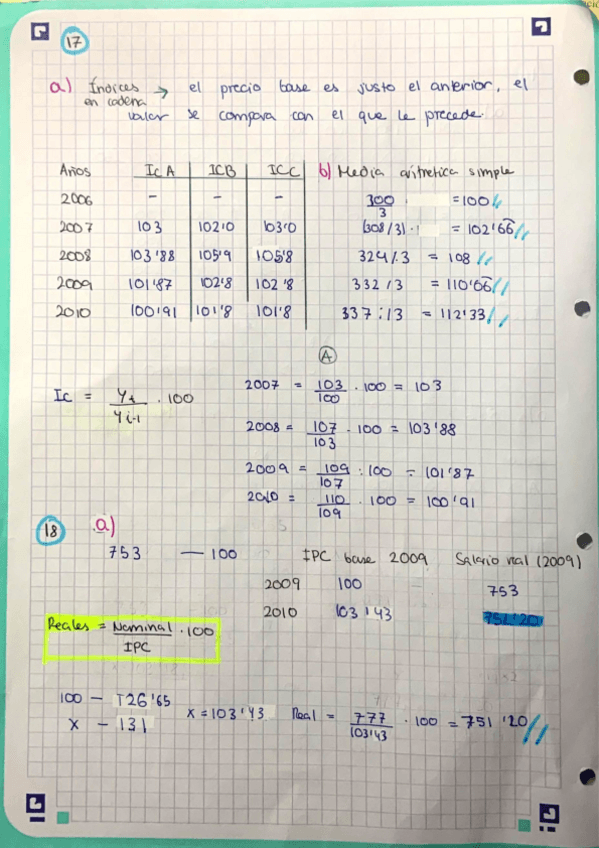 17
a) Índices → el precio base es justo el anterior, el
en cadena valor se compara con el que le precede.
Años IcA ICB ICC b) Media aritretica simple
2006 - - - 300/3 = 100
2007 103 102'0 103'0 (308/3) · = 102'66
2008 103'88 105'9 105'8 324/3 = 108
2009 101'87 102'8 102'8 332/3 = 110'66
2010 100'91 101'8 101'8 337:/3 = 112'33
A
Ic = Yi / Yi-1 · 100
2007 = 103/100 · 100 = 103
2008 = 107/103 · 100 = 103'88
2009 = 109/107 : 100 = 101'87
2010 = 110/109 · 100 = 100'91
18 a)
753 — 100 IPC base 2009 Salario real (2009)
2009 100 753
2010 103'43 751'20
Reales = Nominal / IPC · 100
100 - 126'65
x - 131
x = 103'43 Real = 777/103'43 · 100 = 751'20